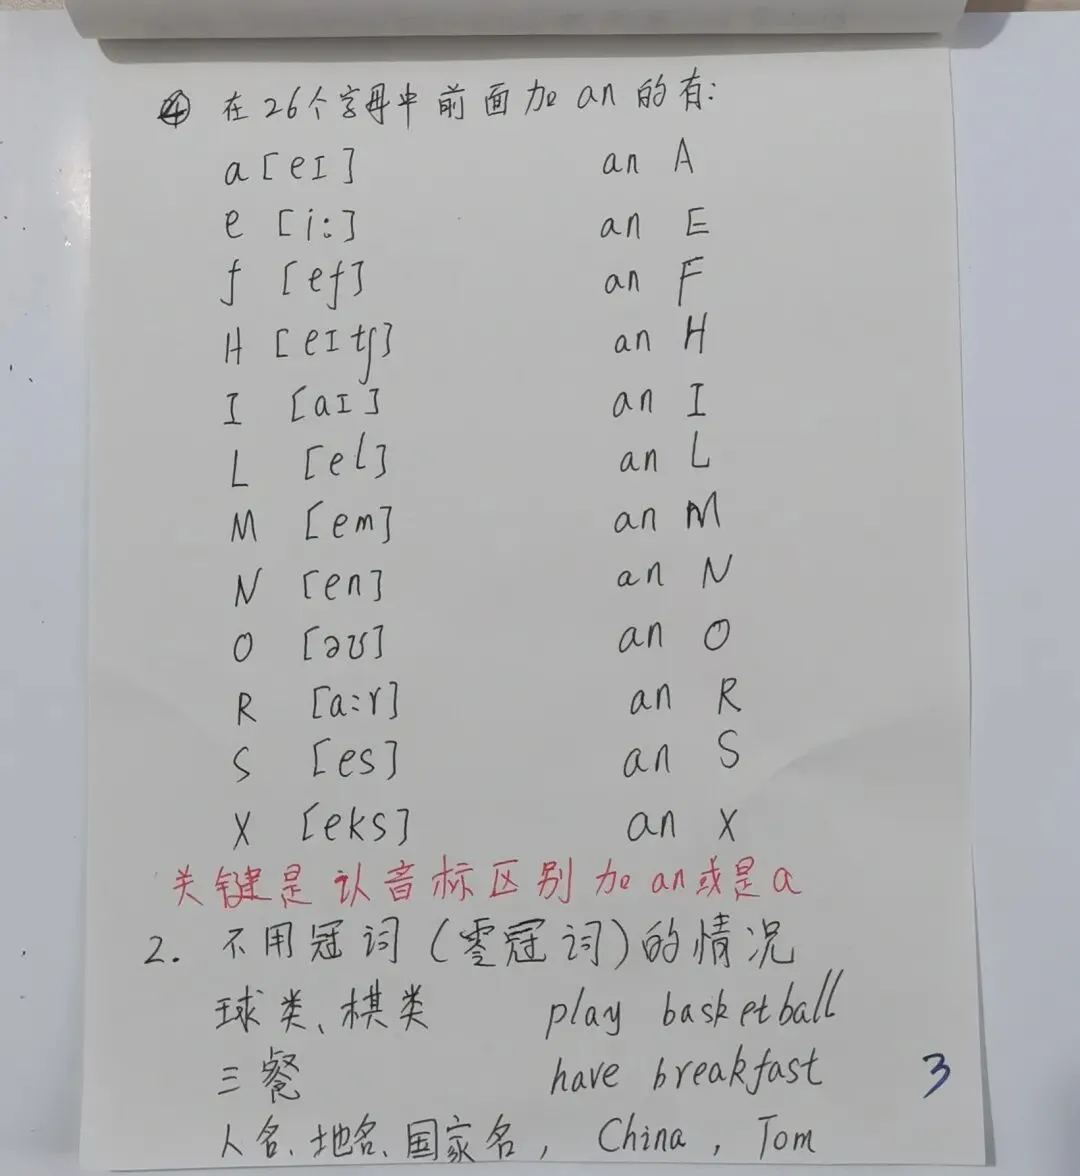 ④ 在26个字母中前面加 an 的有:
a [eɪ] an A
e [i:] an E
f [ef] an F
H [eɪtʃ] an H
I [aɪ] an I
L [el] an L
M [em] an M
N [en] an N
O [əʊ] an O
R [a:r] an R
S [es] an S
X [eks] an X
关键是认音标区别加an或是a
2. 不用冠词(零冠词)的情况
球类、棋类 play basketball
三餐 have breakfast
3
人名、地名、国家名, China, Tom